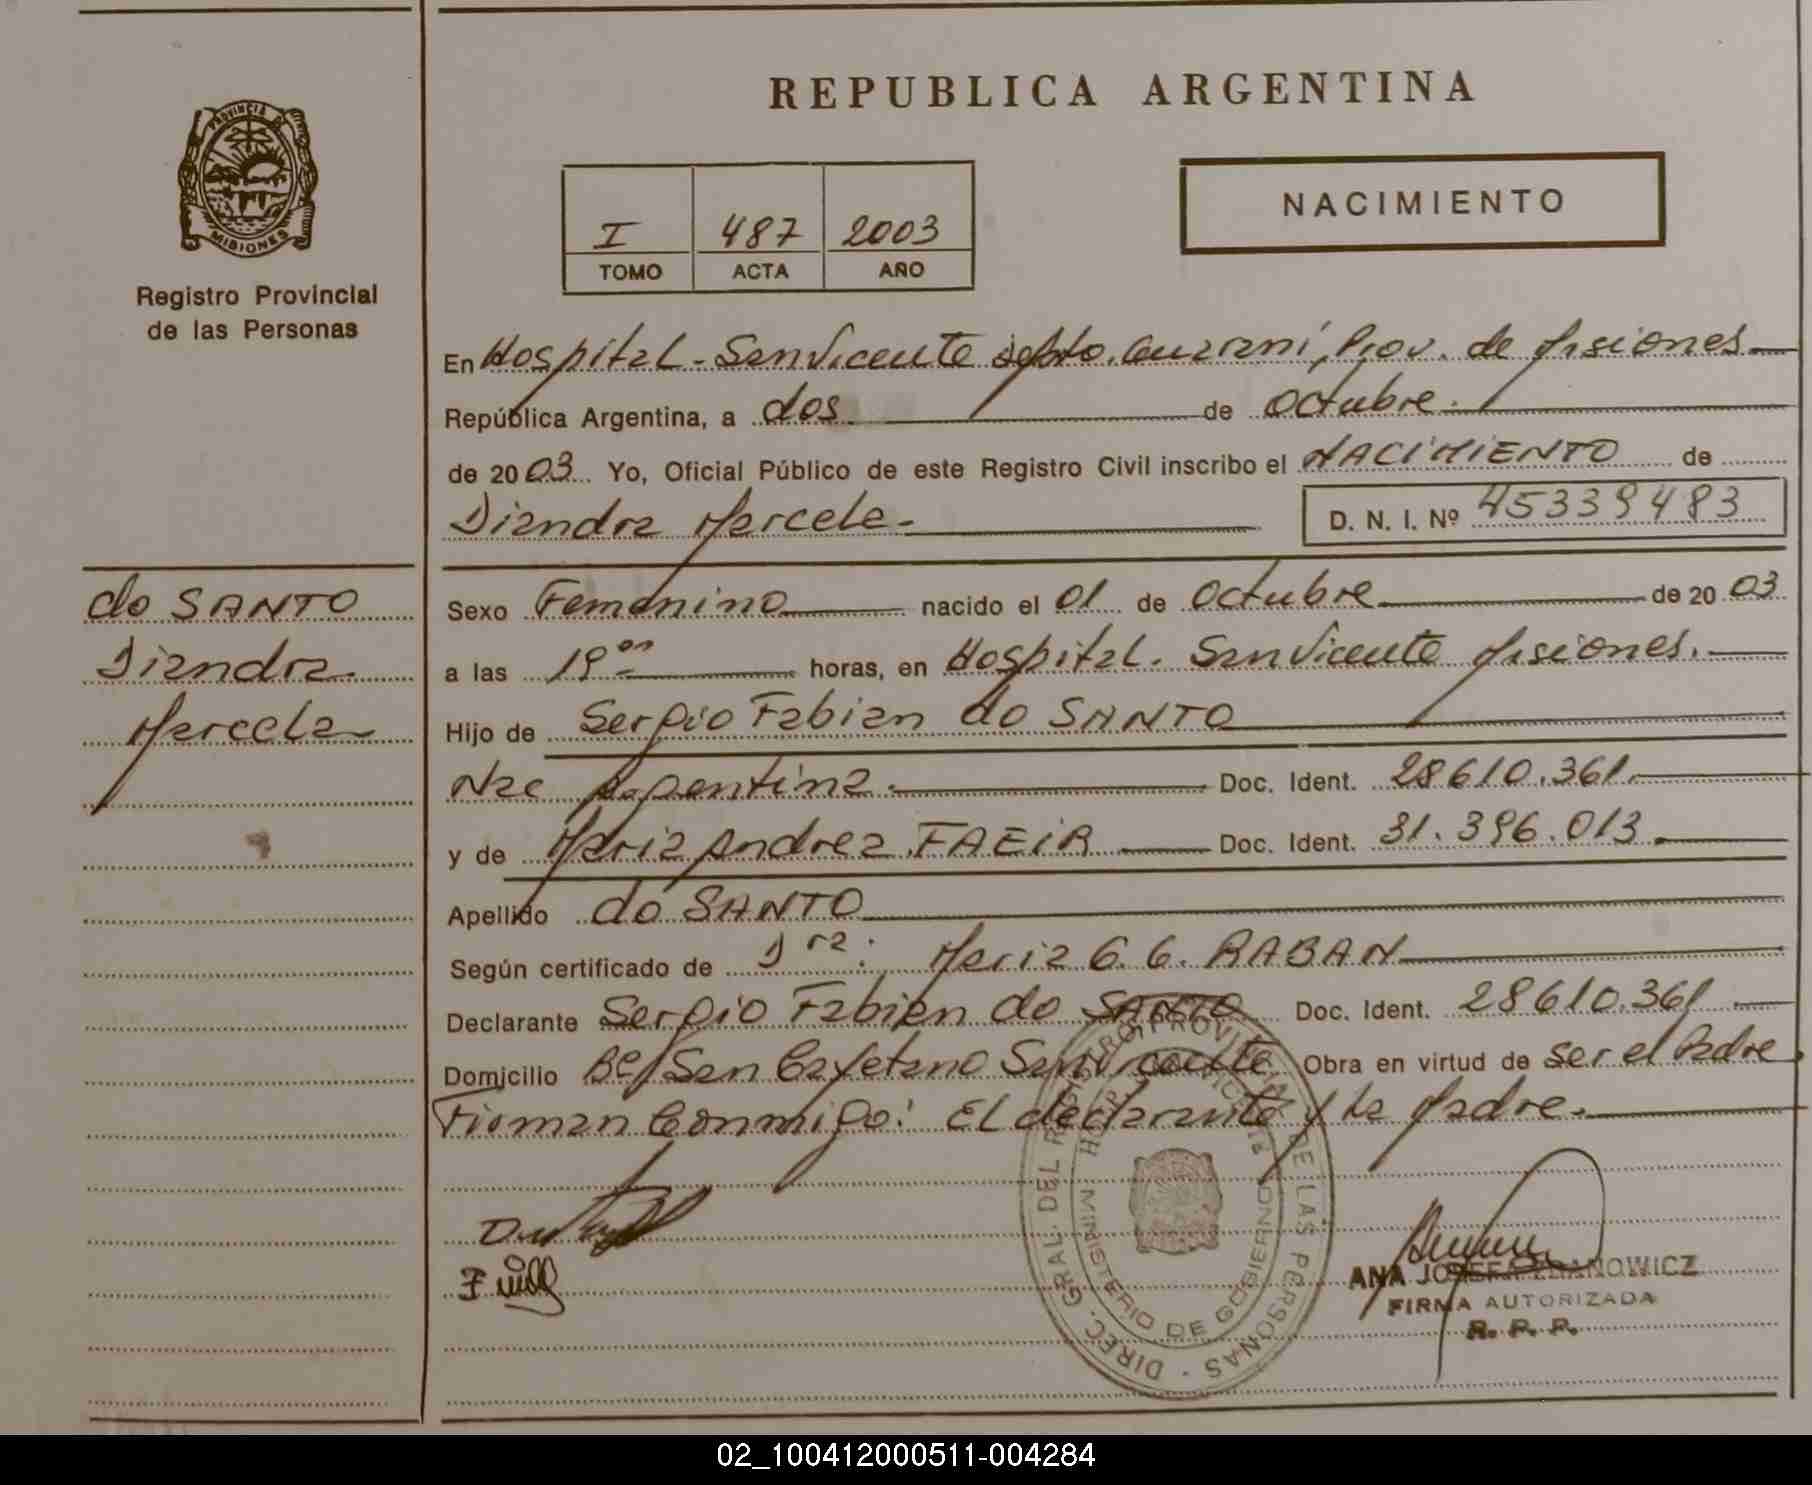 REPUBLICA ARGENTINA
PROVINCIA DE
MISIONES
Registro Provincial
de las Personas
NACIMIENTO
I 487 2003
TOMO ACTA AÑO
En Hospital - San Vicente depto. Guaraní, Prov. de Misiones
República Argentina, a dos de octubre
de 2003 Yo, Oficial Público de este Registro Civil inscribo el NACIMIENTO de
Diandra Marcela.
D. N. I. Nº 45339483
do SANTO
Diandra
Marcela
Sexo Femenino nacido el 01 de octubre de 2003
a las 19 horas, en Hospital. San Vicente Misiones.
Hijo de Sergio Fabian do SANTO
Nac Argentina. Doc. Ident. 28610.361
y de Maria Andrea FAEIR Doc. Ident. 31.396.013.
Apellido do SANTO
Según certificado de Dra. Maria G. G. RABAN
Declarante Sergio Fabian do SANTO Doc. Ident. 28610.361
Domicilio Bº San Cayetano San Vicente Obra en virtud de ser el Padre
Firman Conmigo: El declarante y la Madre.
DIREC. GRAL. DEL REGISTRO PROVINCIAL DE LAS PERSONAS
MINISTERIO DE GOBIERNO
ANA JOSEFA
FIRMA AUTORIZADA
R. P. P.
02_100412000511-004284